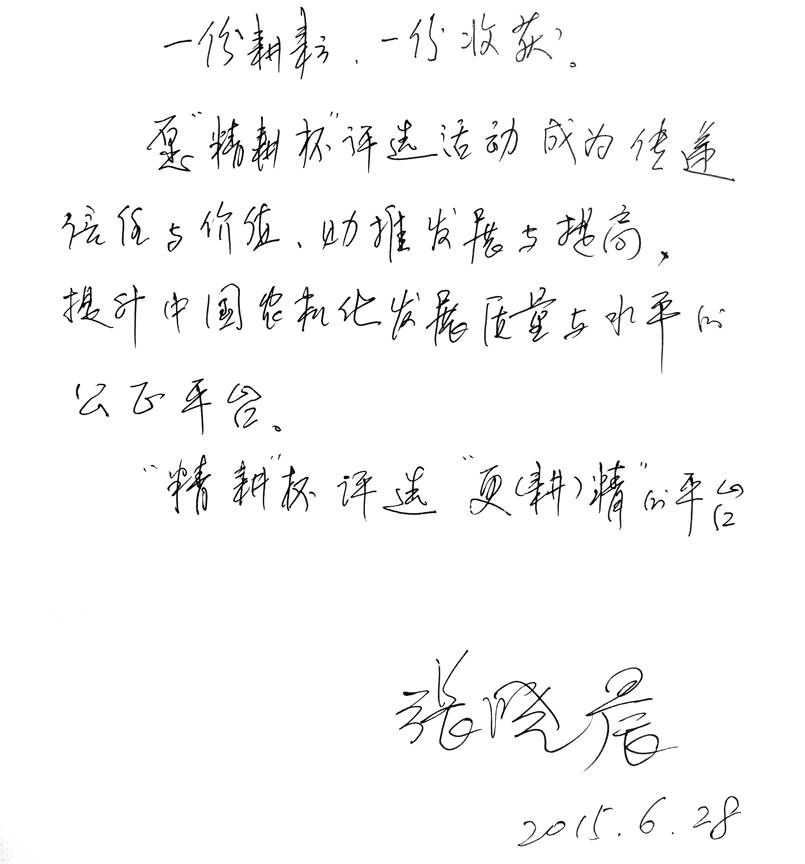 一份耕耘、一份收获。
愿“精耕杯”评选活动成为传递
信任与价值、助推发展与提高,
提升中国农机化发展质量与水平的
公正平台。
“精耕”杯评选“更(耕)精”的平台
张晓晨
2015.6.28